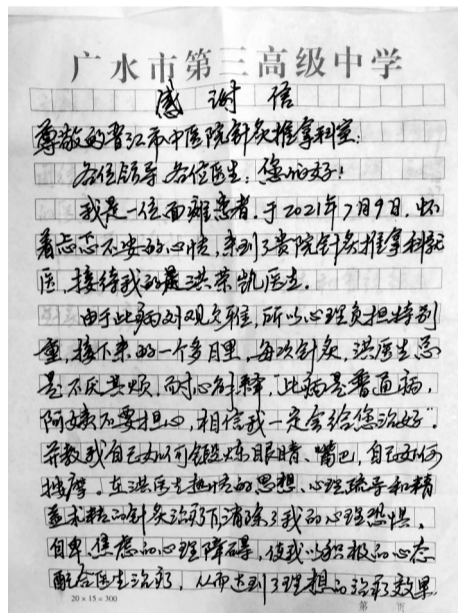 广水市第三高级中学
感谢信
尊敬的晋江市中医院针灸推拿科室:
各位领导、各位医生:您们好!
我是一位面瘫患者,于2021年7月9日,怀
着忐忑不安的心情,来到了贵院针灸推拿科就
医,接待我的是洪荣凯医生。
由于此病对观多难,所以心理负担特别
重,接下来的一个多月里,每次针灸,洪医生总
是不厌其烦,耐心解释,此病是普通病,
阿姨不要担心,相信我一定会给您治好"。
并教我自己如何锻炼眼睛、嘴巴,自己如何
按摩。在洪医生热情的思想、心理疏导和精
益求精的针灸治疗下,消除了我的心理恐惧、
自卑、焦虑的心理障碍,使我以积极的心态
配合医生治疗,从而达到了理想的治疗效果
20×15=300
第 页